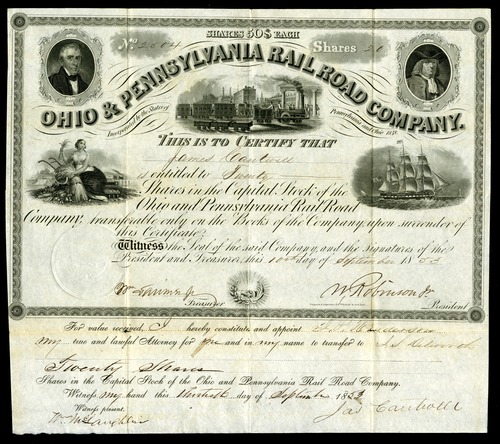 SHARES 50$ EACH
No 2604 Shares 20
OHIO & PENNSYLVANIA RAIL ROAD COMPANY.
Incorporated by the States of Pennsylvania and Ohio 1848
THIS IS TO CERTIFY THAT
James Cantwell
is entitled to Twenty
Shares in the Capital Stock of the
Ohio and Pennsylvania Rail Road
Company, transferable only on the Books of the Company, upon surrender of
this Certificate.
Witness the Seal of the said Company, and the Signatures of the
President and Treasurer, this day of September 1853
Wm Treasurer W Robinson Jr President
For value received, I hereby constitute and appoint
my true and lawful Attorney for me and in my name to transfer to
Twenty Shares
Shares in the Capital Stock of the Ohio and Pennsylvania Rail Road Company.
Witness my hand this day of September 1853
Witness present. Jas Cantwell
Wm McLaughlin